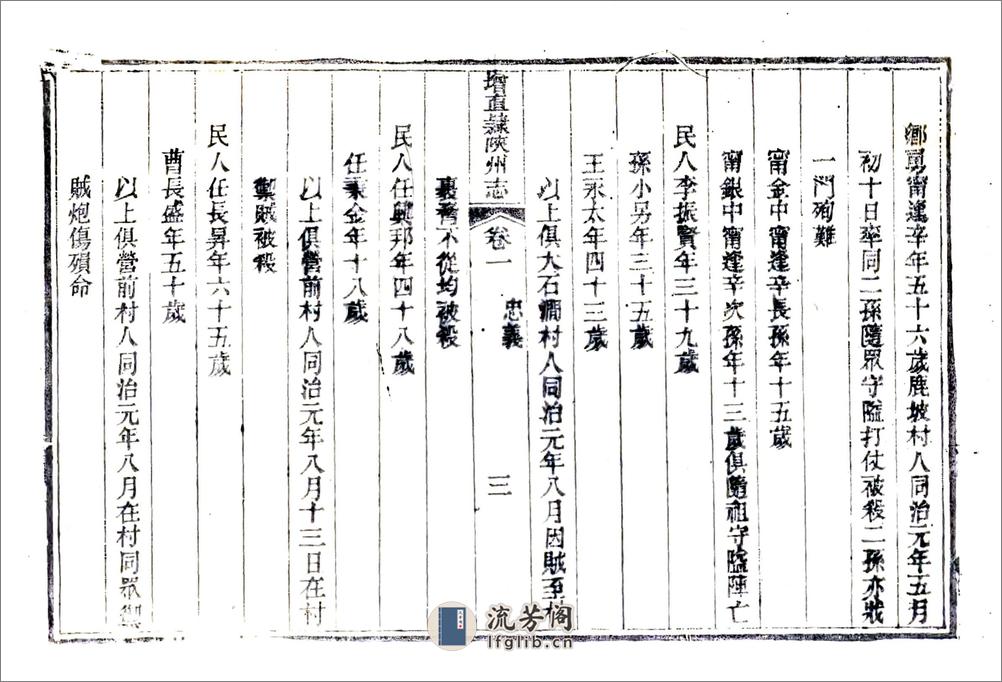 鄉勇甯逢辛年五十六歲鹿坡村人同治元年五月
初十日率同二孫隨眾守隘打仗被殺二孫亦戕
一門殉難
甯金中甯逢辛長孫年十五歲
甯銀中甯逢辛次孫年十三歲俱隨祖守隘陣亡
民人李振賢年三十九歲
孫小另年三十五歲
王永太年四十三歲
以上俱大石澗村人同治元年八月因賊至村
增直隸陝州志 卷一 忠義 三
裹脅不從均被殺
民人任興邦年四十八歲
任秉金年十八歲
以上俱營前村人同治元年八月十三日在村
禦賊被殺
民人任長昇年六十五歲
曹長盛年五十歲
以上俱營前村人同治元年八月在村同眾禦
賊炮傷殞命
流芳閣
lfglib.cn